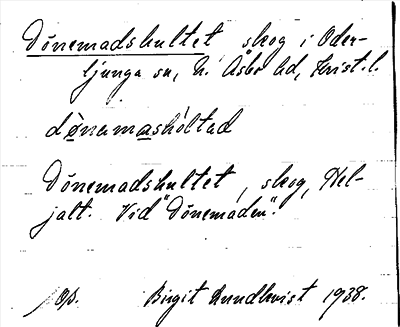 Dönemadshultet, skog i Oder-
ljunga sn, N. Åsbo hd, Krist. l.
dònamashòltad
Dönemadshultet, skog, Hel-
jalt. Vid "Dönemaden".
Op. Birgit Lundkvist 1938.